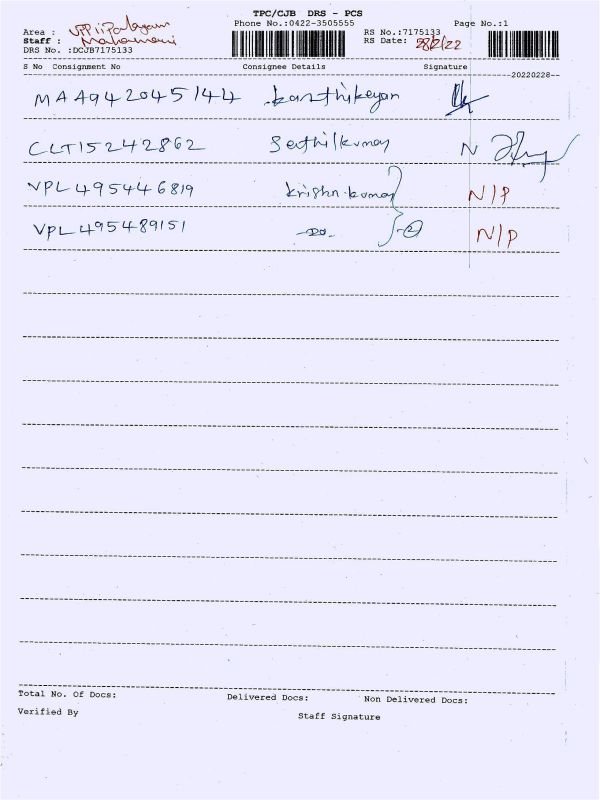 TPC/CJB DRS - PCS
Phone No.:0422-3505555 Page No.:1
Area : Uppilipalayam RS No.:7175133
Staff : RS Date: 28/2/22
DRS No. :DCJB7175133
S No Consignment No Consignee Details Signature
20220228
MAA942045144 karthikeyan
CLT15242862 Senthilkumar N
VPL495446819 krishn.kumar N/P
VPL495489151 -DO- 2 N/P
Total No. Of Docs: Delivered Docs: Non Delivered Docs:
Verified By Staff Signature